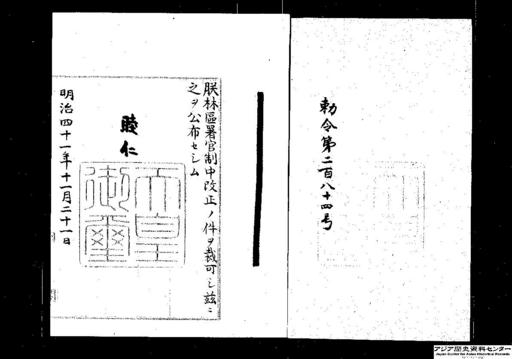 勅令第二百八十四号
朕林區署官制中改正ノ件ヲ裁可シ玆ニ
之ヲ公布セシム
睦仁
天皇
御璽
明治四十一年十一月二十一日
アジア歴史資料センター
Japan Center for Asian Historical Records